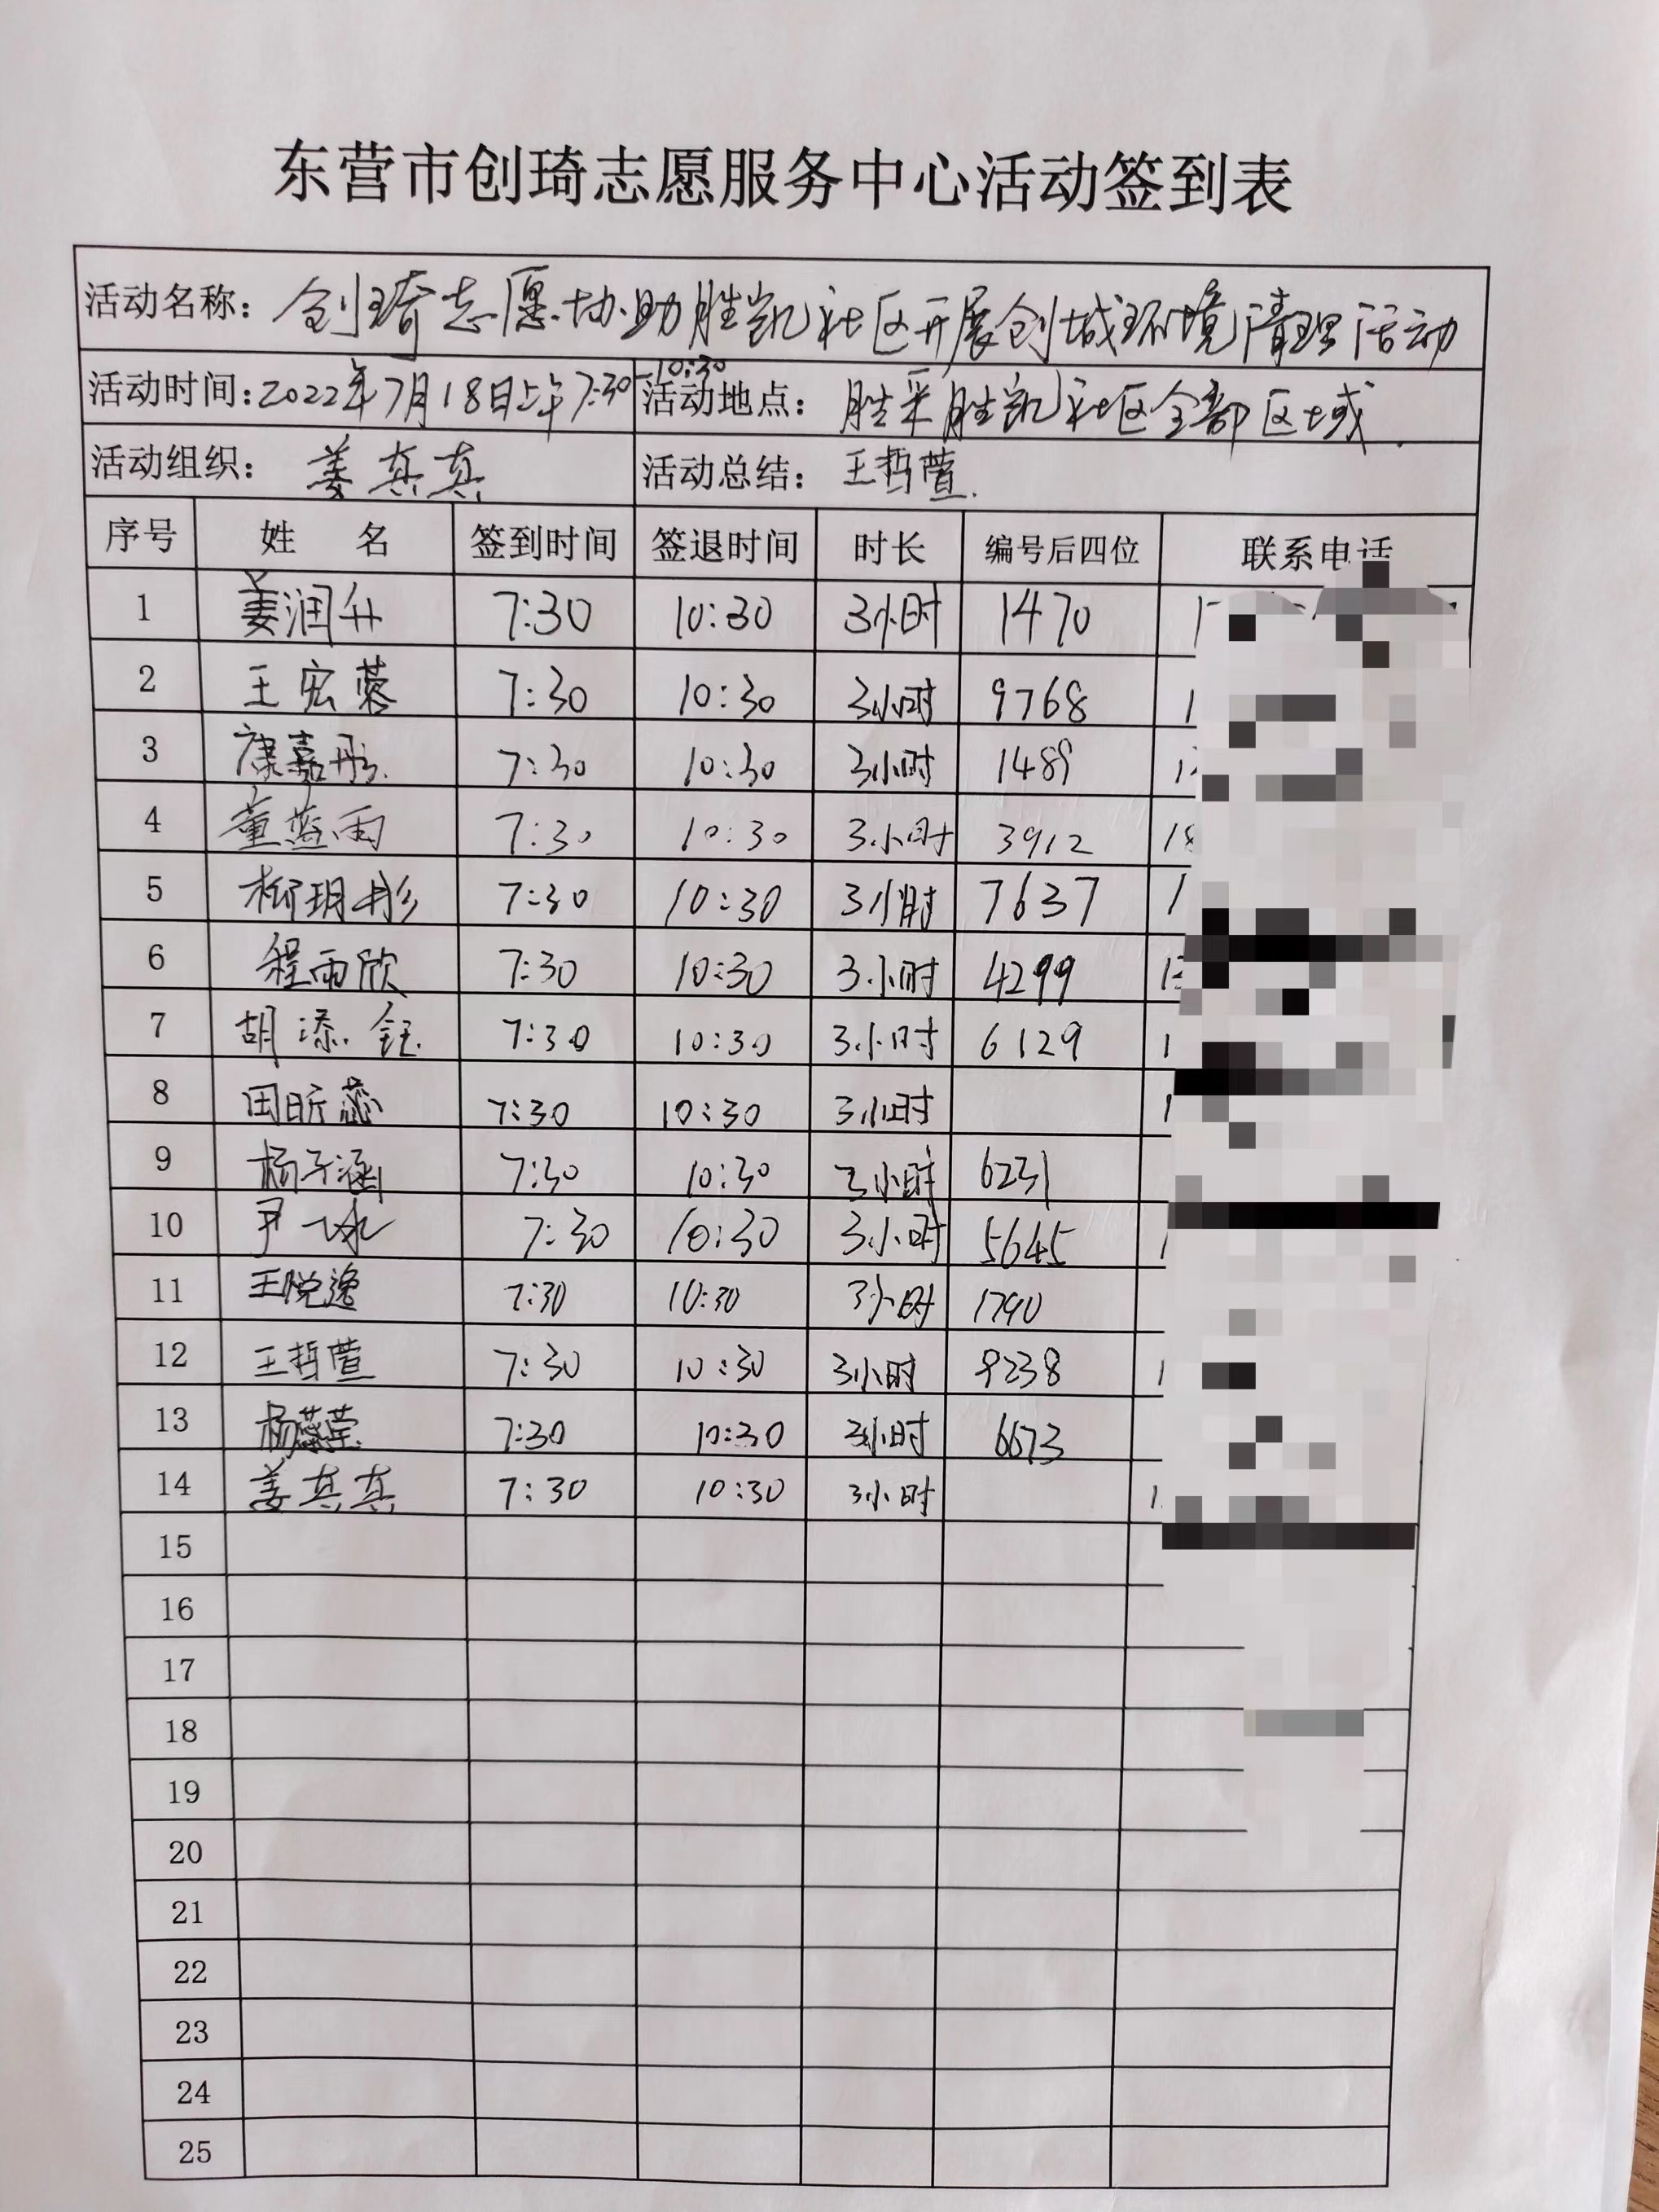 东营市创琦志愿服务中心活动签到表
活动名称：创琦志愿协助胜凯社区开展创城环境清理活动
活动时间：2022年7月18日上午7:30-10:30 活动地点：胜采胜凯社区全部区域
活动组织：姜真真 活动总结：王哲萱
序号 姓 名 签到时间 签退时间 时长 编号后四位 联系电话
1 姜润升 7:30 10:30 3小时 1470
2 王宏蓉 7:30 10:30 3小时 9768
3 康嘉彤 7:30 10:30 3小时 1489
4 董蓝雨 7:30 10:30 3小时 3912
5 柳玥彤 7:30 10:30 3小时 7637
6 程雨欣 7:30 10:30 3小时 4299
7 胡添钰 7:30 10:30 3小时 6129
8 田昕蕊 7:30 10:30 3小时
9 杨子涵 7:30 10:30 3小时 6231
10 尹一冰 7:30 10:30 3小时 5645
11 王悦逸 7:30 10:30 3小时 1790
12 王哲萱 7:30 10:30 3小时 9238
13 杨 7:30 10:30 3小时 6673
14 姜真真 7:30 10:30 3小时
15
16
17
18
19
20
21
22
23
24
25